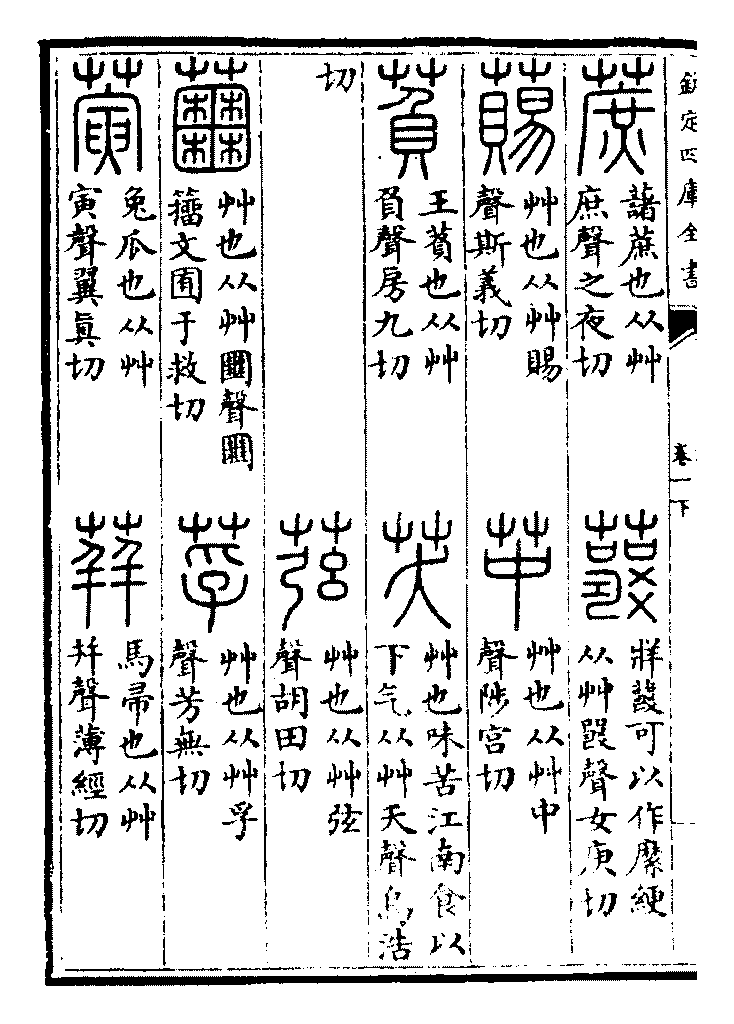 欽定四庫全書
卷一下
蔗
藷蔗也从艸
庶聲之夜切
牂 可以作縻綆
从艸 聲女庚切
艸也从艸賜
聲斯義切
艸也从艸中
聲陟宮切
萯
王萯也从艸
負聲房九切
芺
艸也味苦江南食以
下气从艸夭聲烏浩
切
艸也从艸弦
聲胡田切
艸也从艸 聲
籒文囿于救切
莩
艸也从艸孚
聲芳無切
兔瓜也从艸
寅聲翼眞切
荓
馬帚也从艸
幷聲薄經切